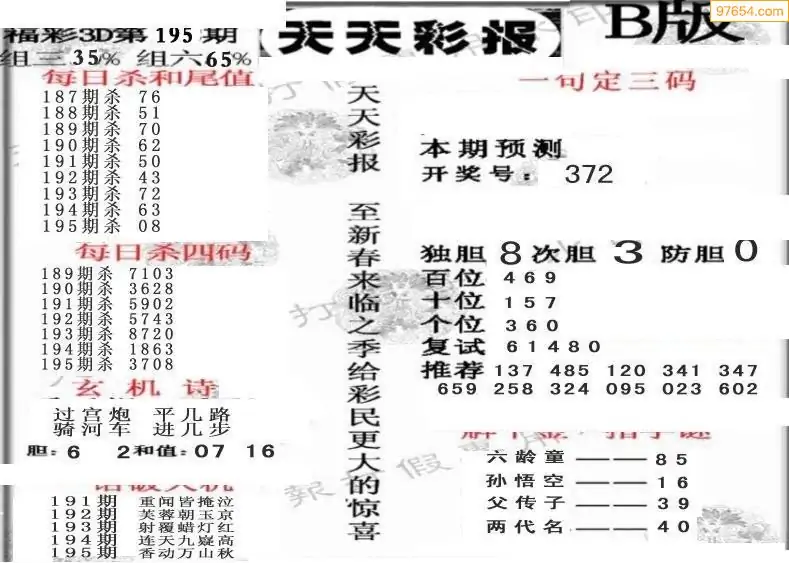 97654.com
福彩3D第195期
组三35% 组六65%
天天彩报
B版
每日杀和尾值
187期杀 76
188期杀 51
189期杀 70
190期杀 62
191期杀 50
192期杀 43
193期杀 72
194期杀 63
195期杀 08
每日杀四码
189期杀 7103
190期杀 3628
191期杀 5902
192期杀 5743
193期杀 8720
194期杀 1863
195期杀 3708
玄机诗
过宫炮 平几路
骑河车 进几步
胆:6 2和值:07 16
191期 重闻皆掩泣
192期 芙蓉朝玉京
193期 射覆蜡灯红
194期 连天九嶷高
195期 香动万山秋
天天彩报 至新春来临之季给彩民更大的惊喜
一句定三码
本期预测
开奖号: 372
独胆8次胆3防胆0
百位 469
十位 157
个位 360
复试 61480
推荐 137 485 120 341 347
659 258 324 095 023 602
六龄童——85
孙悟空——16
父传子——39
两代名——40